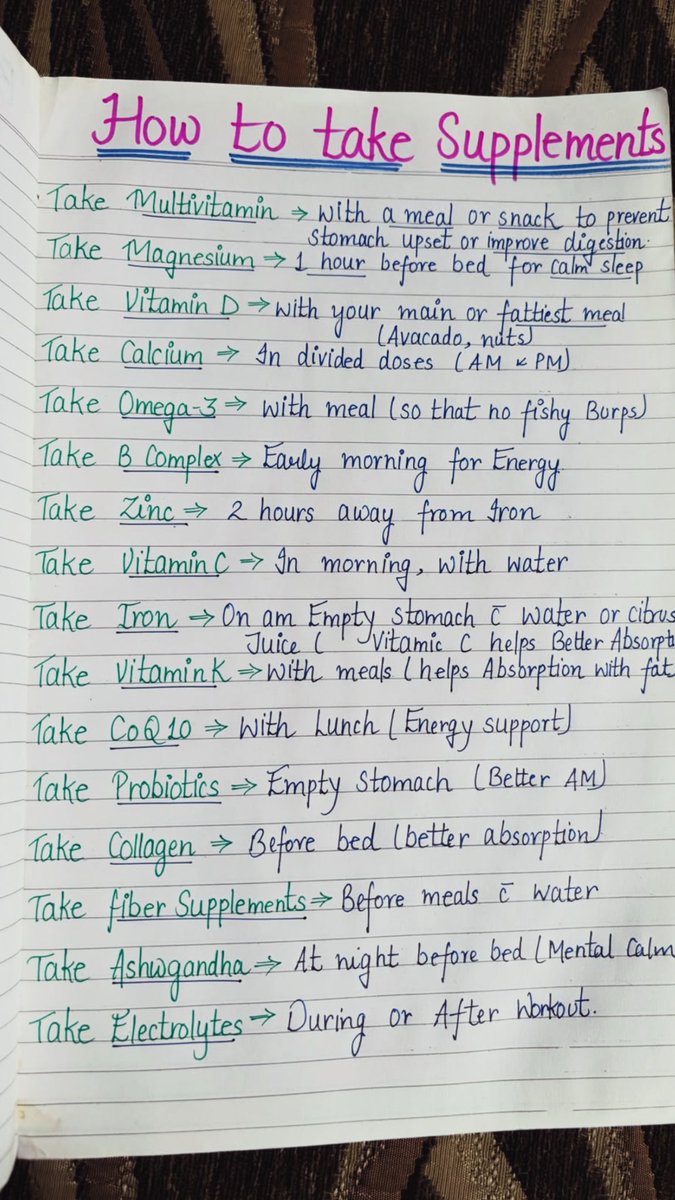 How to take Supplements
Take Multivitamin → with a meal or snack to prevent
Stomach upset or improve digestion.
Take Magnesium ⇒ 1 hour before bed for calm sleep
Take Vitamin D → with your main or fattiest meal
(Avacado, nuts)
Take Calcium ⇒ In divided doses (AM & PM)
Take Omega-3 ⇒ with meal (so that no fishy Burps)
Take B Complex ⇒ Early morning for Energy.
Take Zinc ⇒ 2 hours away from Iron
Take Vitamin C → In morning, with water
Take Iron ⇒ On am Empty stomach c̄ water or citrus
Juice ( Vitamic C helps Better Absorpt
Take Vitamin K ⇒ with meals (helps Absorption with fat
Take CoQ10 ⇒ With Lunch (Energy support)
Take Probiotics ⇒ Empty Stomach (Better AM)
Take Collagen ⇒ Before bed (better absorption)
Take fiber Supplements ⇒ Before meals c̄ water
Take Ashwgandha ⇒ At night before bed (Mental Calm
Take Electrolytes → During or After Workout.